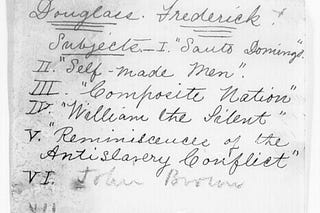 Douglass. Frederick.
Subjects - I. "Santo Domingo".
II. "Self-made Men".
III. "Composite Nation"
IV. "William the Silent"
V. "Reminiscences of the
Antislavery Conflict"
VI. John Brown
VII